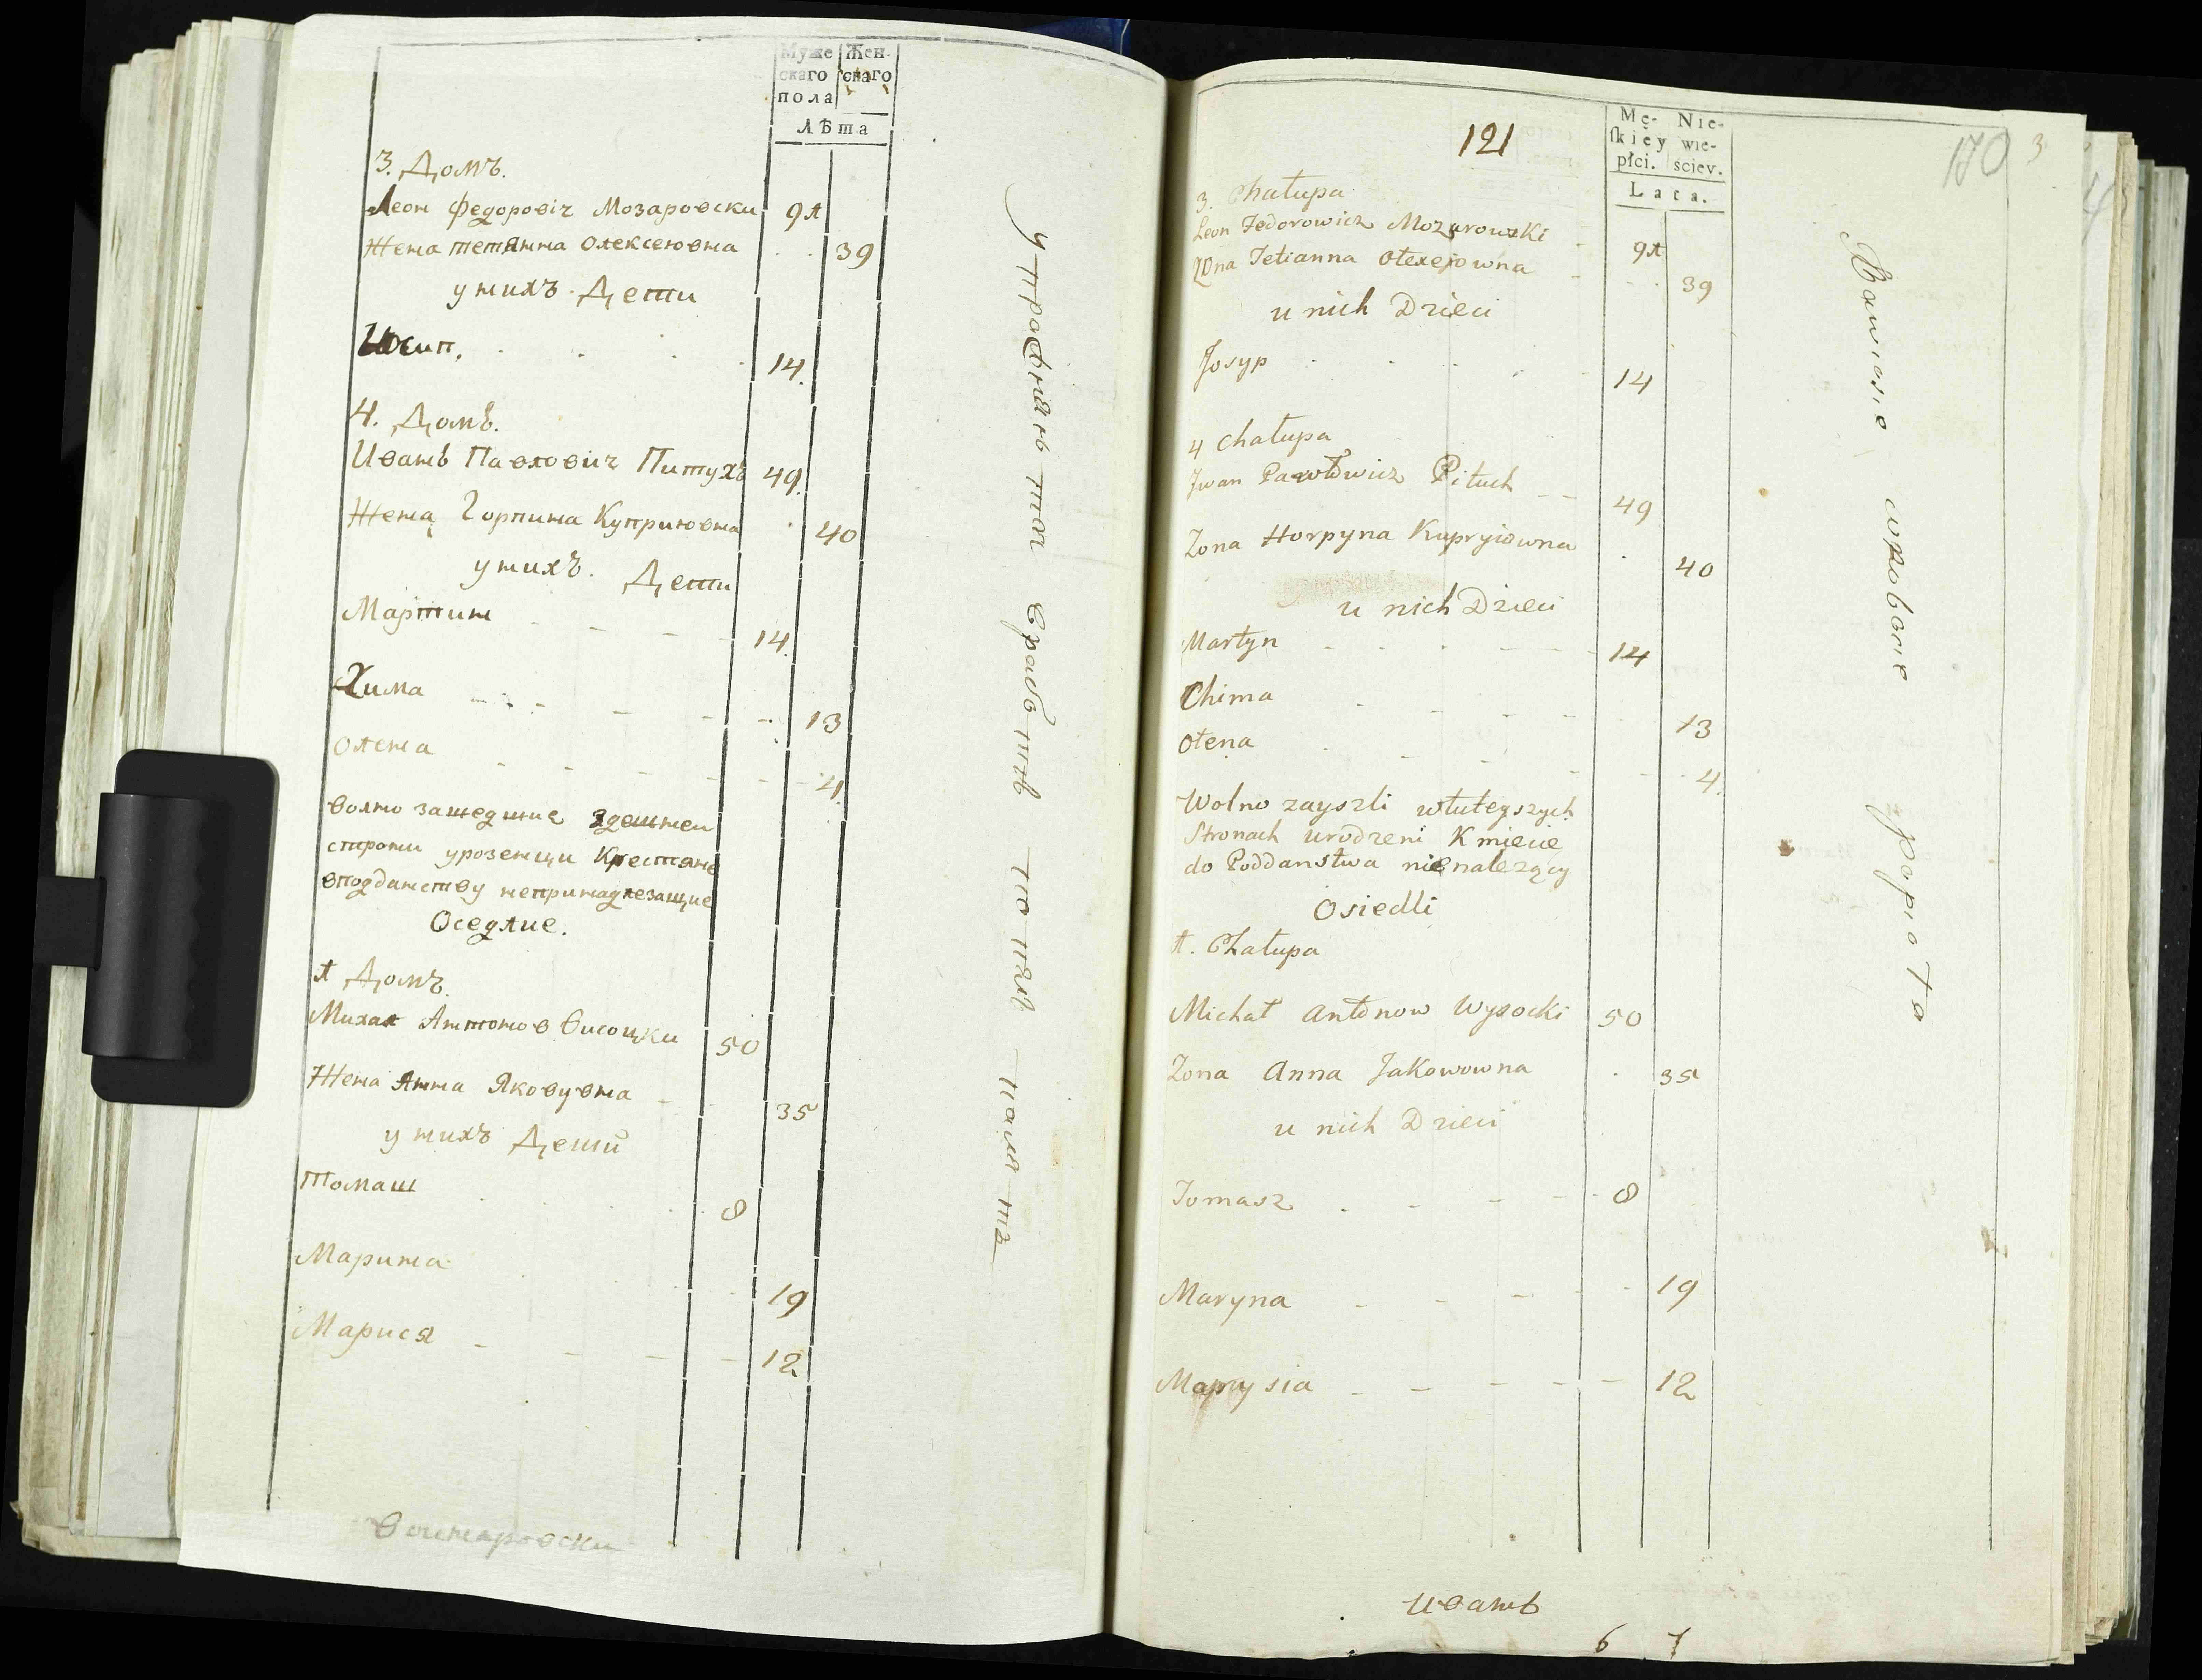 Муже Жен-
скаго скаго
пола
лѣта
3. Домъ.
Леон Федоровіч Мозаровски 91
Жена тетянна Олексеювна 39
у нихъ Дети
Иосип, 14.
4. Домъ.
Иванъ Павловіч Питухъ 49.
Жена Горпина Куприювна 40
у нихъ. Дети
Мартин 14.
Хима 13
Олена 4.
волно зашедшие здешнеи
строни уроженци Крестяне
вподданству непринадлежащие
Оседлие.
1 Домъ.
Михал Антонов висоцки 50
Жена Анна Яковувна 35
у нихъ Дети
Томаш 8
Марина 19
Марися 12
121
170 3
Mę- Nie-
skiey wie-
płci. sciey.
Lata.
3. Chałupa
Leon Fedorowicz Mozarowski 91
Zona Tetianna Olexejowna 39
u nich Dzieci
Josyp 14
4 Chałupa
Jwan Pawłowicz Pituch 49
Zona Horpyna Kupryiowna 40
u nich Dzieci
Martyn 14
Chima 13
Ołena 4.
Wolno zayszli wtuteyszych
Stronach urodzeni Kmiecie
do Poddanstwa nienalezący
Osiedli
1. Chałupa
Michał Antonow Wysocki 50
Zona Anna Jakowowna 35
u nich Dzieci
Tomasz 8
Maryna 19
Marysia 12
иванъ
6 7